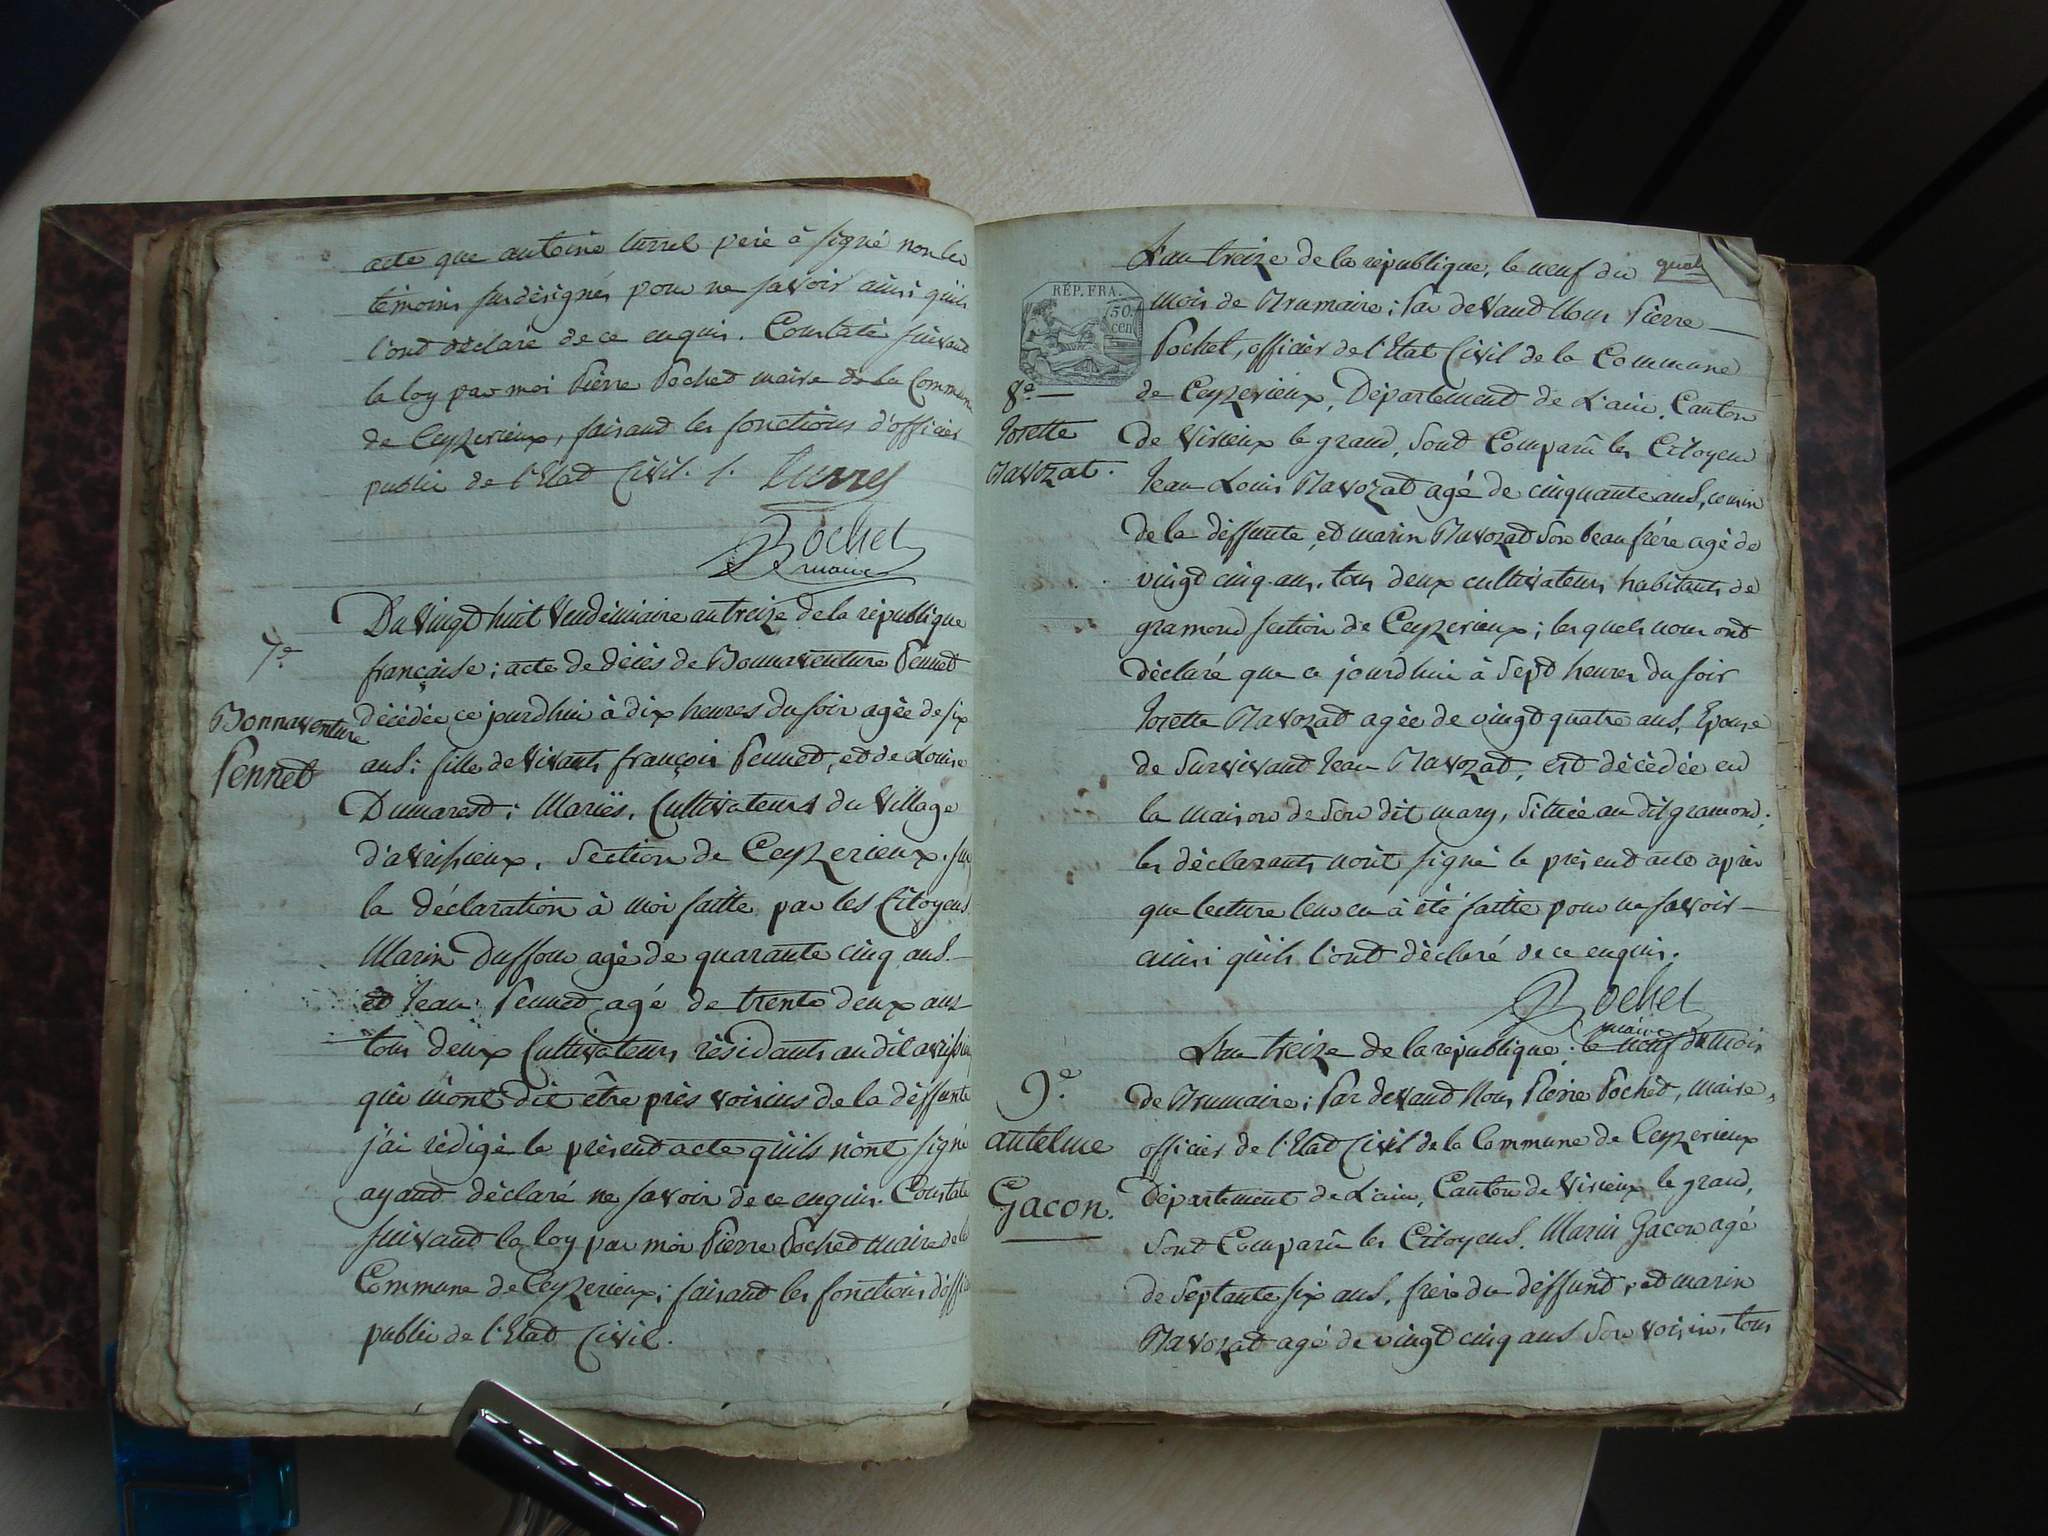 acte que antoine turrel pere à signé non les
témoins susdésignés pour ne savoir ainsi qu'ils
l'ont déclaré de ce enquis. Constaté suivant
la loy par moi Pierre Pochet maire de la Commune
de Ceyzerieux, faisant les fonctions d'officier
public de l'Etat Civil. /.
Pochet
maire
Du vingt huit Vendémiaire an treize de la république
7e
française; acte de décès de Bonnaventure Pennet
Bonnaventure
Pennet
décédée ce jourdhui à dix heures du soir agée de six
ans; fille de vivants françois Pennet, et de Louise
Dumarest; Mariés, Cultivateurs du village
d'avrissieux, Section de Ceyzerieux, sur
la déclaration à moi faitte par les Citoyens
Marin Duffour agé de quarante cinq ans
et Jean Pennet agé de trente deux ans
tous deux Cultivateurs résidants au dit
qui m'ont dit être près voisins de la deffunte
j'ai rédigé le présent acte qu'ils n'ont signé
ayant déclaré ne savoir de ce enquis. Constaté
suivant la loy par moi Pierre Pochet maire de la
Commune de Ceyzerieux; faisant les fonctions
public de l'Etat Civil.
L'an treize de la république, le neuf du
RÉP. FRA.
50.
cen
mois de Brumaire; Par devant Nous Pierre
Pochet, officier de l'Etat Civil de la Commune
8e
Josette
Navozat.
de Ceyzerieux, Département de L'ain, Canton
de Virieux le grand, Sont Comparû les Citoyens
Jean Louis Navozat agé de cinquante ans, cousin
de la deffunte, et marin Navozat Son beau frére agé de
vingt cinq ans, tous deux cultivateurs habitants de
gramond section de Ceyzerieux; les quels nous ont
déclaré que ce jourdhui à Sept heures du soir
Josette Navozat agée de vingt quatre ans, Epouse
de Survivant Jean Navozat, est décédée en
la maison de Son dit mary, Sittuée au dit gramond;
les déclarants n'ont signé le présent acte après
que lecture leur en à été faitte pour ne savoir
ainsi qu'ils l'ont déclaré de ce enquis.
Pochet
maire
L'an treize de la république; le neuf du mois
9e
antelme
Gacon.
de Brumaire; Par devant Nous Pierre Pochet, maire,
officier de l'Etat Civil de la Commune de Ceyzerieux
Département de L'ain, Canton de Virieux le grand,
Sont Comparû les Citoyens. Marin Gacon agé
de Septante six ans, frére du deffunt, et marin
Navozat agé de vingt cinq ans Son voisin, tous